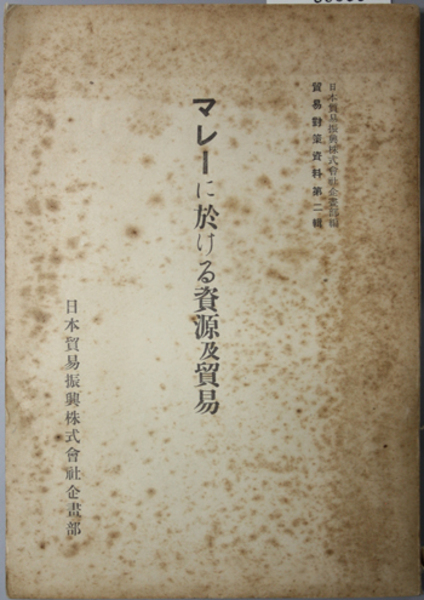 日本貿易振興株式會社企畫部編
貿易對策資料第二輯
マレーに於ける資源及貿易
日本貿易振興株式會社企畫部